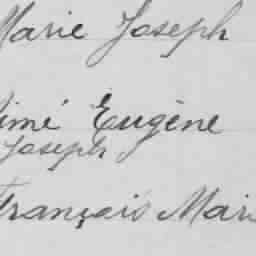 Marie Joseph
Aimé Eugène
Joseph
François Marie